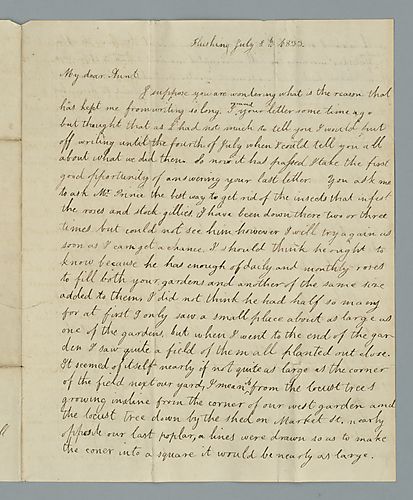 Flushing July 8th 1833.
My dear Aunt
I suppose you are wondering what is the reason that
has kept me from writing so long. I your letter some time ago
but thought that as I had not much to tell you I would put
off writing until the fourth of July when I could tell you all
about what we did then. So now it has passed I take the first
good opportunity of answering your last letter. You ask me
to ask Mr. Prince the best way to get rid of the insects that infest
the roses and stock gillies, I have been down there two or three
times but could not see him however I will try again as
soon as I can get a chance. I should think he ought to
know because he has enough of daily and monthly roses
to fill both your gardens and another of the same size
added to them, I did not think he had half so many
for at first I only saw a small place about as large as
one of the gardens, but when I went to the end of the gar-
den I saw quite a field of them all planted out close.
It seemed of itself nearly if not quite as large as the corner
of the field next our yard, I mean from the locust trees
growing in a line from the corner of our west garden and
the locust tree down by the shed on Market St. nearly
opposite our last poplar, a lines were drawn so as to make
the coner into a square it would be nearly as large.